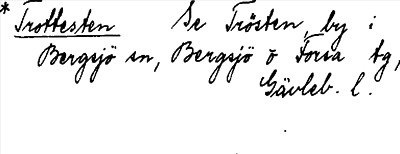 * Trottesten Se Trösten, by i
Bergsjö sn, Bergsjö o Forsa tg,
Gävleb. l.